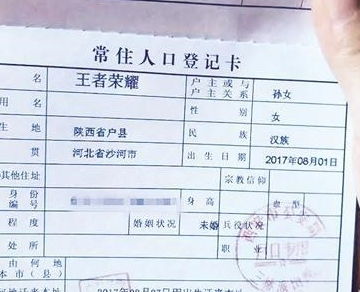 常住人口登记卡
名 王者荣耀 户主或与户主关系 孙女
用名 性别 女
生地 陕西省户县 民族 汉族
贯 河北省沙河市 出生日期 2017年08月01日
其他住址 宗教信仰
身份编号 身高 血型
程度 婚姻状况 未婚 兵役状况
处所 职业
由何地
本市（县）